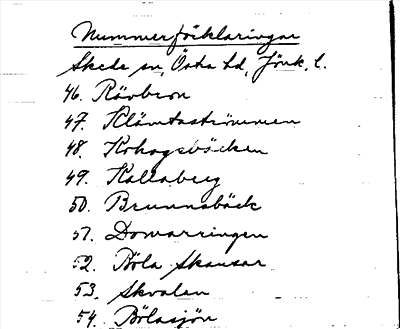 Nummerförklaringar
Skede sn, Östra hd, Jönk. l.
46. Rävbron
47. Klämtaströmmen
48. Kohagsbäcken
49. Kallaberg
50. Brunnsbäck
51. Domarringen
52. Böla Skansar
53. Skvalan
54. Bölasjön